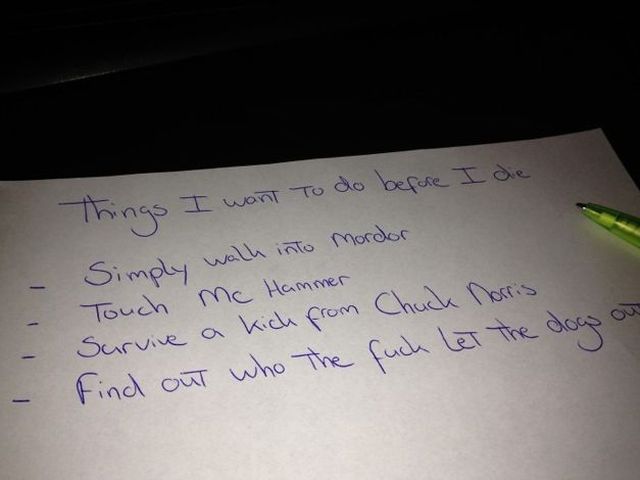 Things I want to do before I die
- Simply walk into Mordor
- Touch Mc Hammer
- Survive a kick from Chuck Norris
- Find out who the fuck let the dogs out